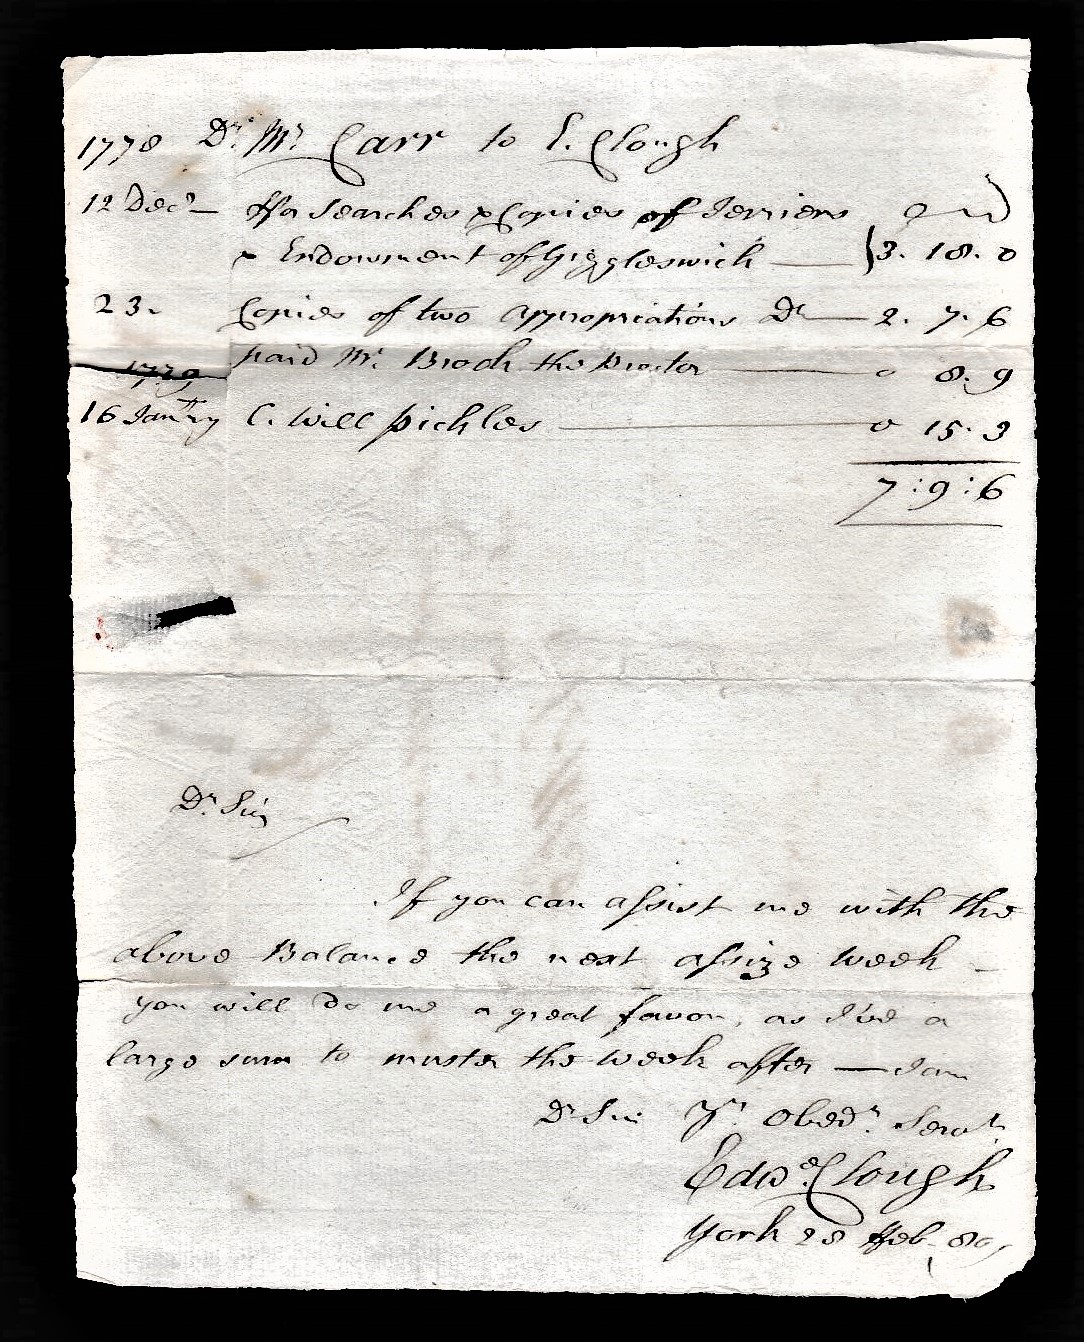 1778 Dr. Mr. Carr to E. Clough
12 Decr ffor Searches & Copies of Terriers
& Endowment of Giggleswick — 3. 18. 0
23. Copies of two Appropriations Do — 2. 7. 6
paid Mr. Brook the Proctor — 0 8. 9
1779
16 Jan'ry C. Will Pickles — 0 15. 3
7 : 9 : 6
Dr. Sir,
If you can assist me with the
above Balance the next assize week —
you will do me a great favor, as I've a
large sum to muster the week after — I am
Dr Sir Yr. Obedt. Servt.
Edwd. Clough
York 28 ffeb. 80